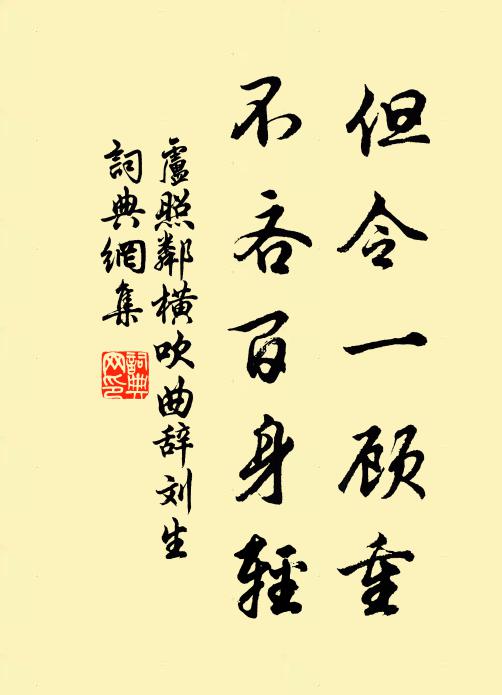 但令一顾重
不吝百身輕
盧照鄰橫吹曲辞刘生
詞典網集
詞典网印